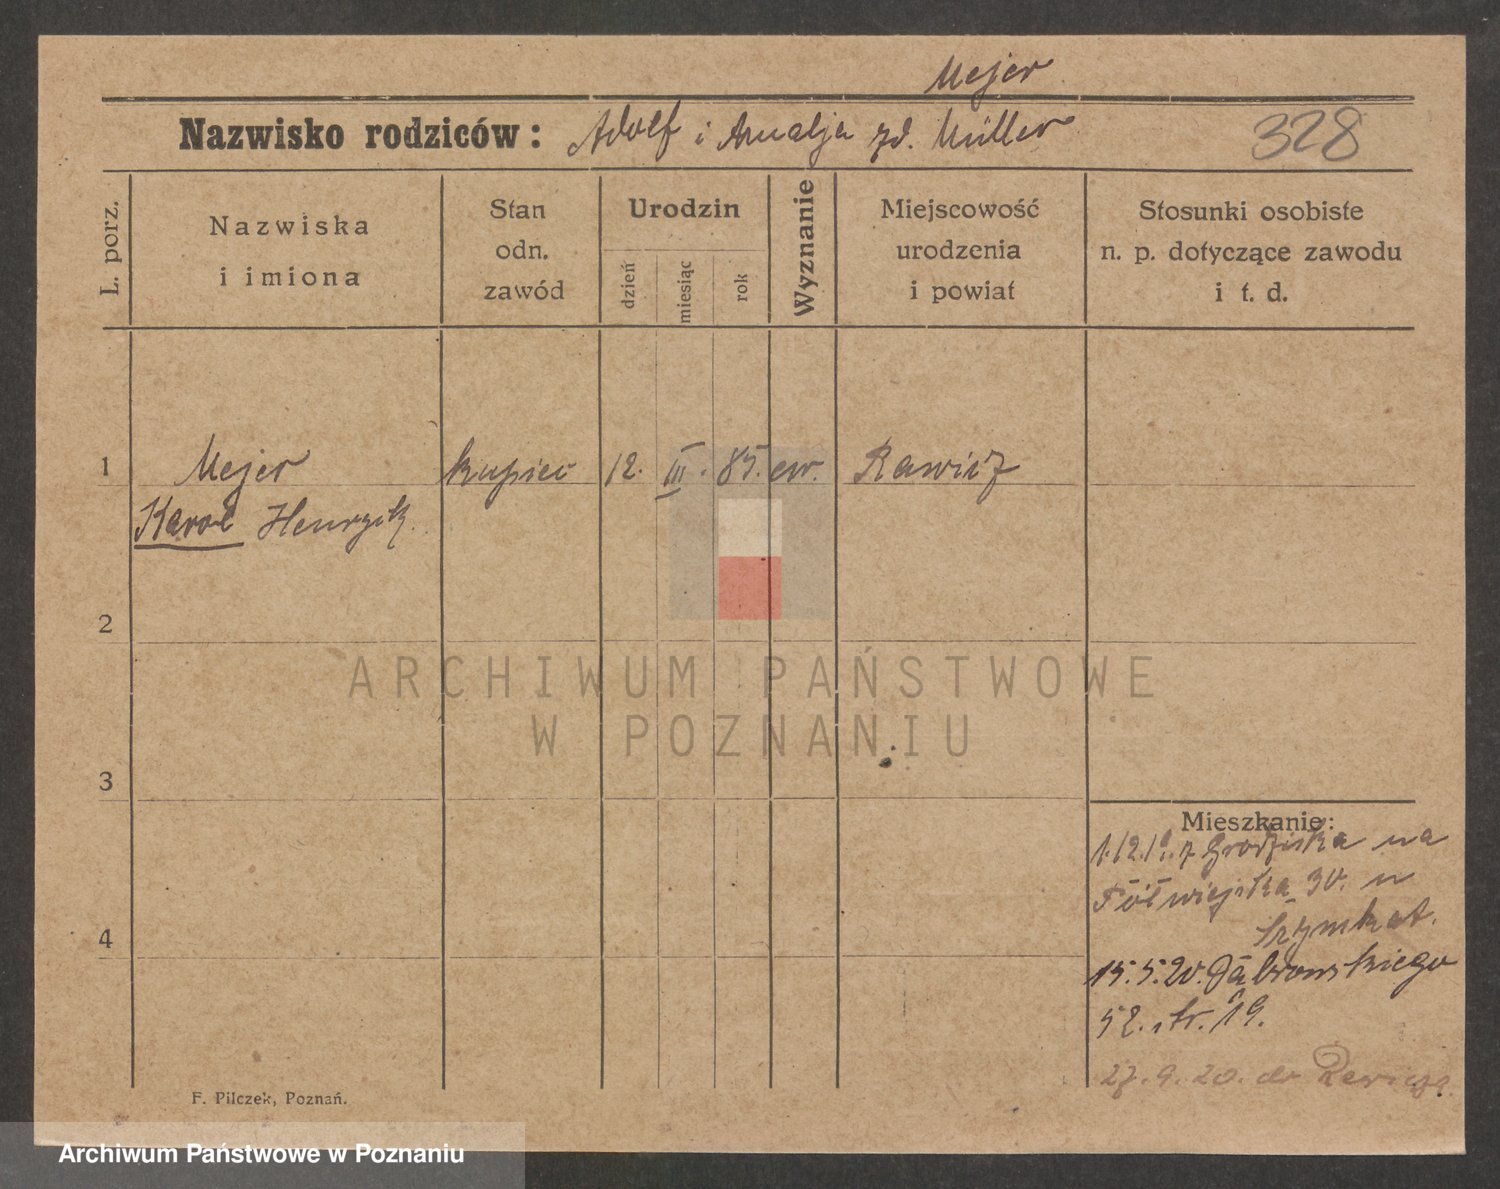 Mejer
Nazwisko rodziców: Adolf i Amalja zd. Müller
328
L. porz.
Nazwiska
i imiona
Stan
odn.
zawód
Urodzin
dzień
miesiąc
rok
Wyznanie
Miejscowość
urodzenia
i powiat
Stosunki osobiste
n. p. dotyczące zawodu
i t. d.
1
Mejer
Karol Henryk.
kupiec
12. III. 85. ew. Rawicz
2
3
4
Mieszkanie:
1.12.19. z Grodziska na
Półwiejska 30. u
15.5.20. Dąbrowskiego
52. str. 19.
27.9.20. do Rawicza.
F. Pilczek, Poznań.
ARCHIWUM PAŃSTWOWE
W POZNANIU
Archiwum Państwowe w Poznaniu